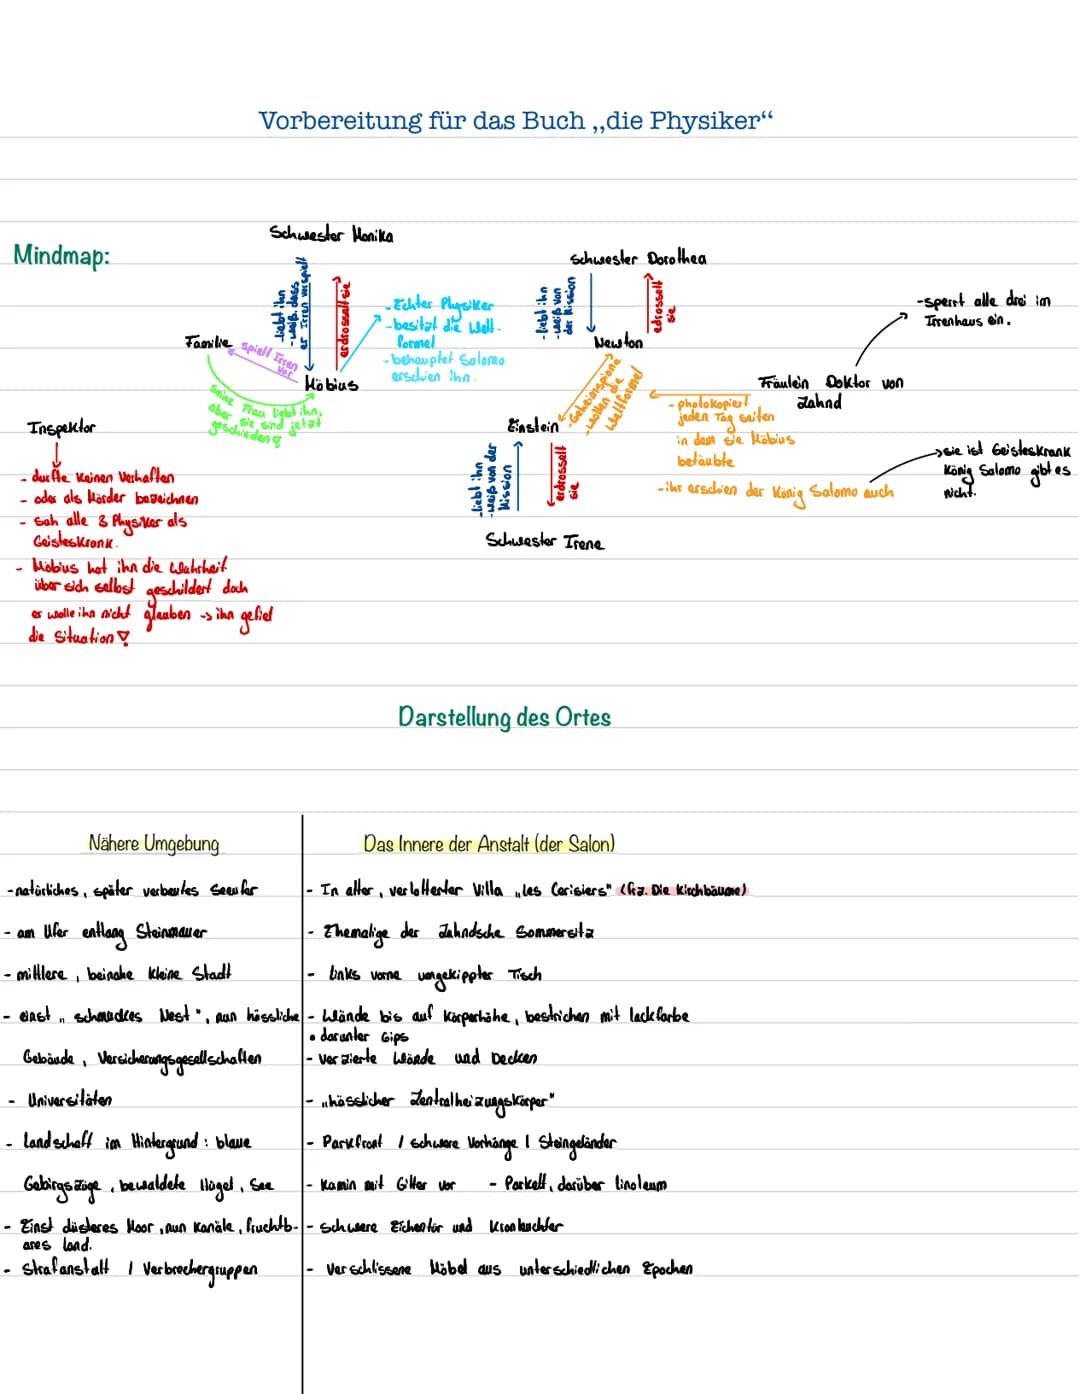 Vorbereitung für das Buch „die Physiker“
Mindmap:
Schwester Monika
-liebt ihn
-weiß, dass
er Irren vorspielt
erdrosselt sie
- Echter Physiker
- besitzt die Welt-
formel
- behauptet Salomo
erschien ihn.
Familie
spielt Irren
vor
Möbius
seine Frau liebt ihn,
aber sie sind jetzt
geschieden
Schwester Dorothea
-liebt ihn
-weiß von
der Mission
edrosselt
sie
Newton
-Geheimspione
-wollen die
Weltformel
Einstein
-liebt ihn
-weiß von der
Mission
erdrosselt
sie
Schwester Irene
-sperrt alle drei im
Irrenhaus ein.
Fräulein Doktor von
Zahnd
- photokopiert
jeden Tag seiten
in dem sie Möbius
betäubte
-ihr erschien der König Salomo auch
sie ist Geisteskrank
König Salomo gibt es
nicht.
Inspektor
- durfte keinen Verhaften
- oder als Mörder bezeichnen
- sah alle 3 Physiker als
Geisteskrank.
- Möbius hat ihn die Wahrheit
über sich selbst geschildert doch
er wolle ihn nicht glauben -> ihn gefiel
die Situation!
Darstellung des Ortes
Nähere Umgebung
-natürliches, später verbautes Seeufer
- am Ufer entlang Steinmauer
- mittlere, beinahe kleine Stadt
- einst „schmuckes Nest", nun hässliche
Gebäude, Versicherungsgesellschaften
- Universitäten
- Landschaft im Hintergrund: blaue
Gebirgszüge, bewaldete Hügel, See
- Einst düsteres Moor, nun Kanäle, fruchtb-
ares Land.
- Strafanstalt / Verbrechergruppen
Das Innere der Anstalt (der Salon)
- In alter, verlotterter Villa „les Cerisiers" (frz. Die Kirchbäume)
- Ehemalige der Zahndsche Sommersitz
- links vorne umgekippter Tisch
- Wände bis auf Körperhöhe, bestrichen mit lackfarbe
• darunter Gips
- Verzierte Wände und Decken
- „hässlicher Zentralheizungskörper"
- Parkfront / schwere Vorhänge / Steingeländer
- Kamin mit Gitter vor - Parkett, darüber linoleum
- schwere Eichentür und Kronleuchter
- Verschlissene Möbel aus unterschiedlichen Epochen